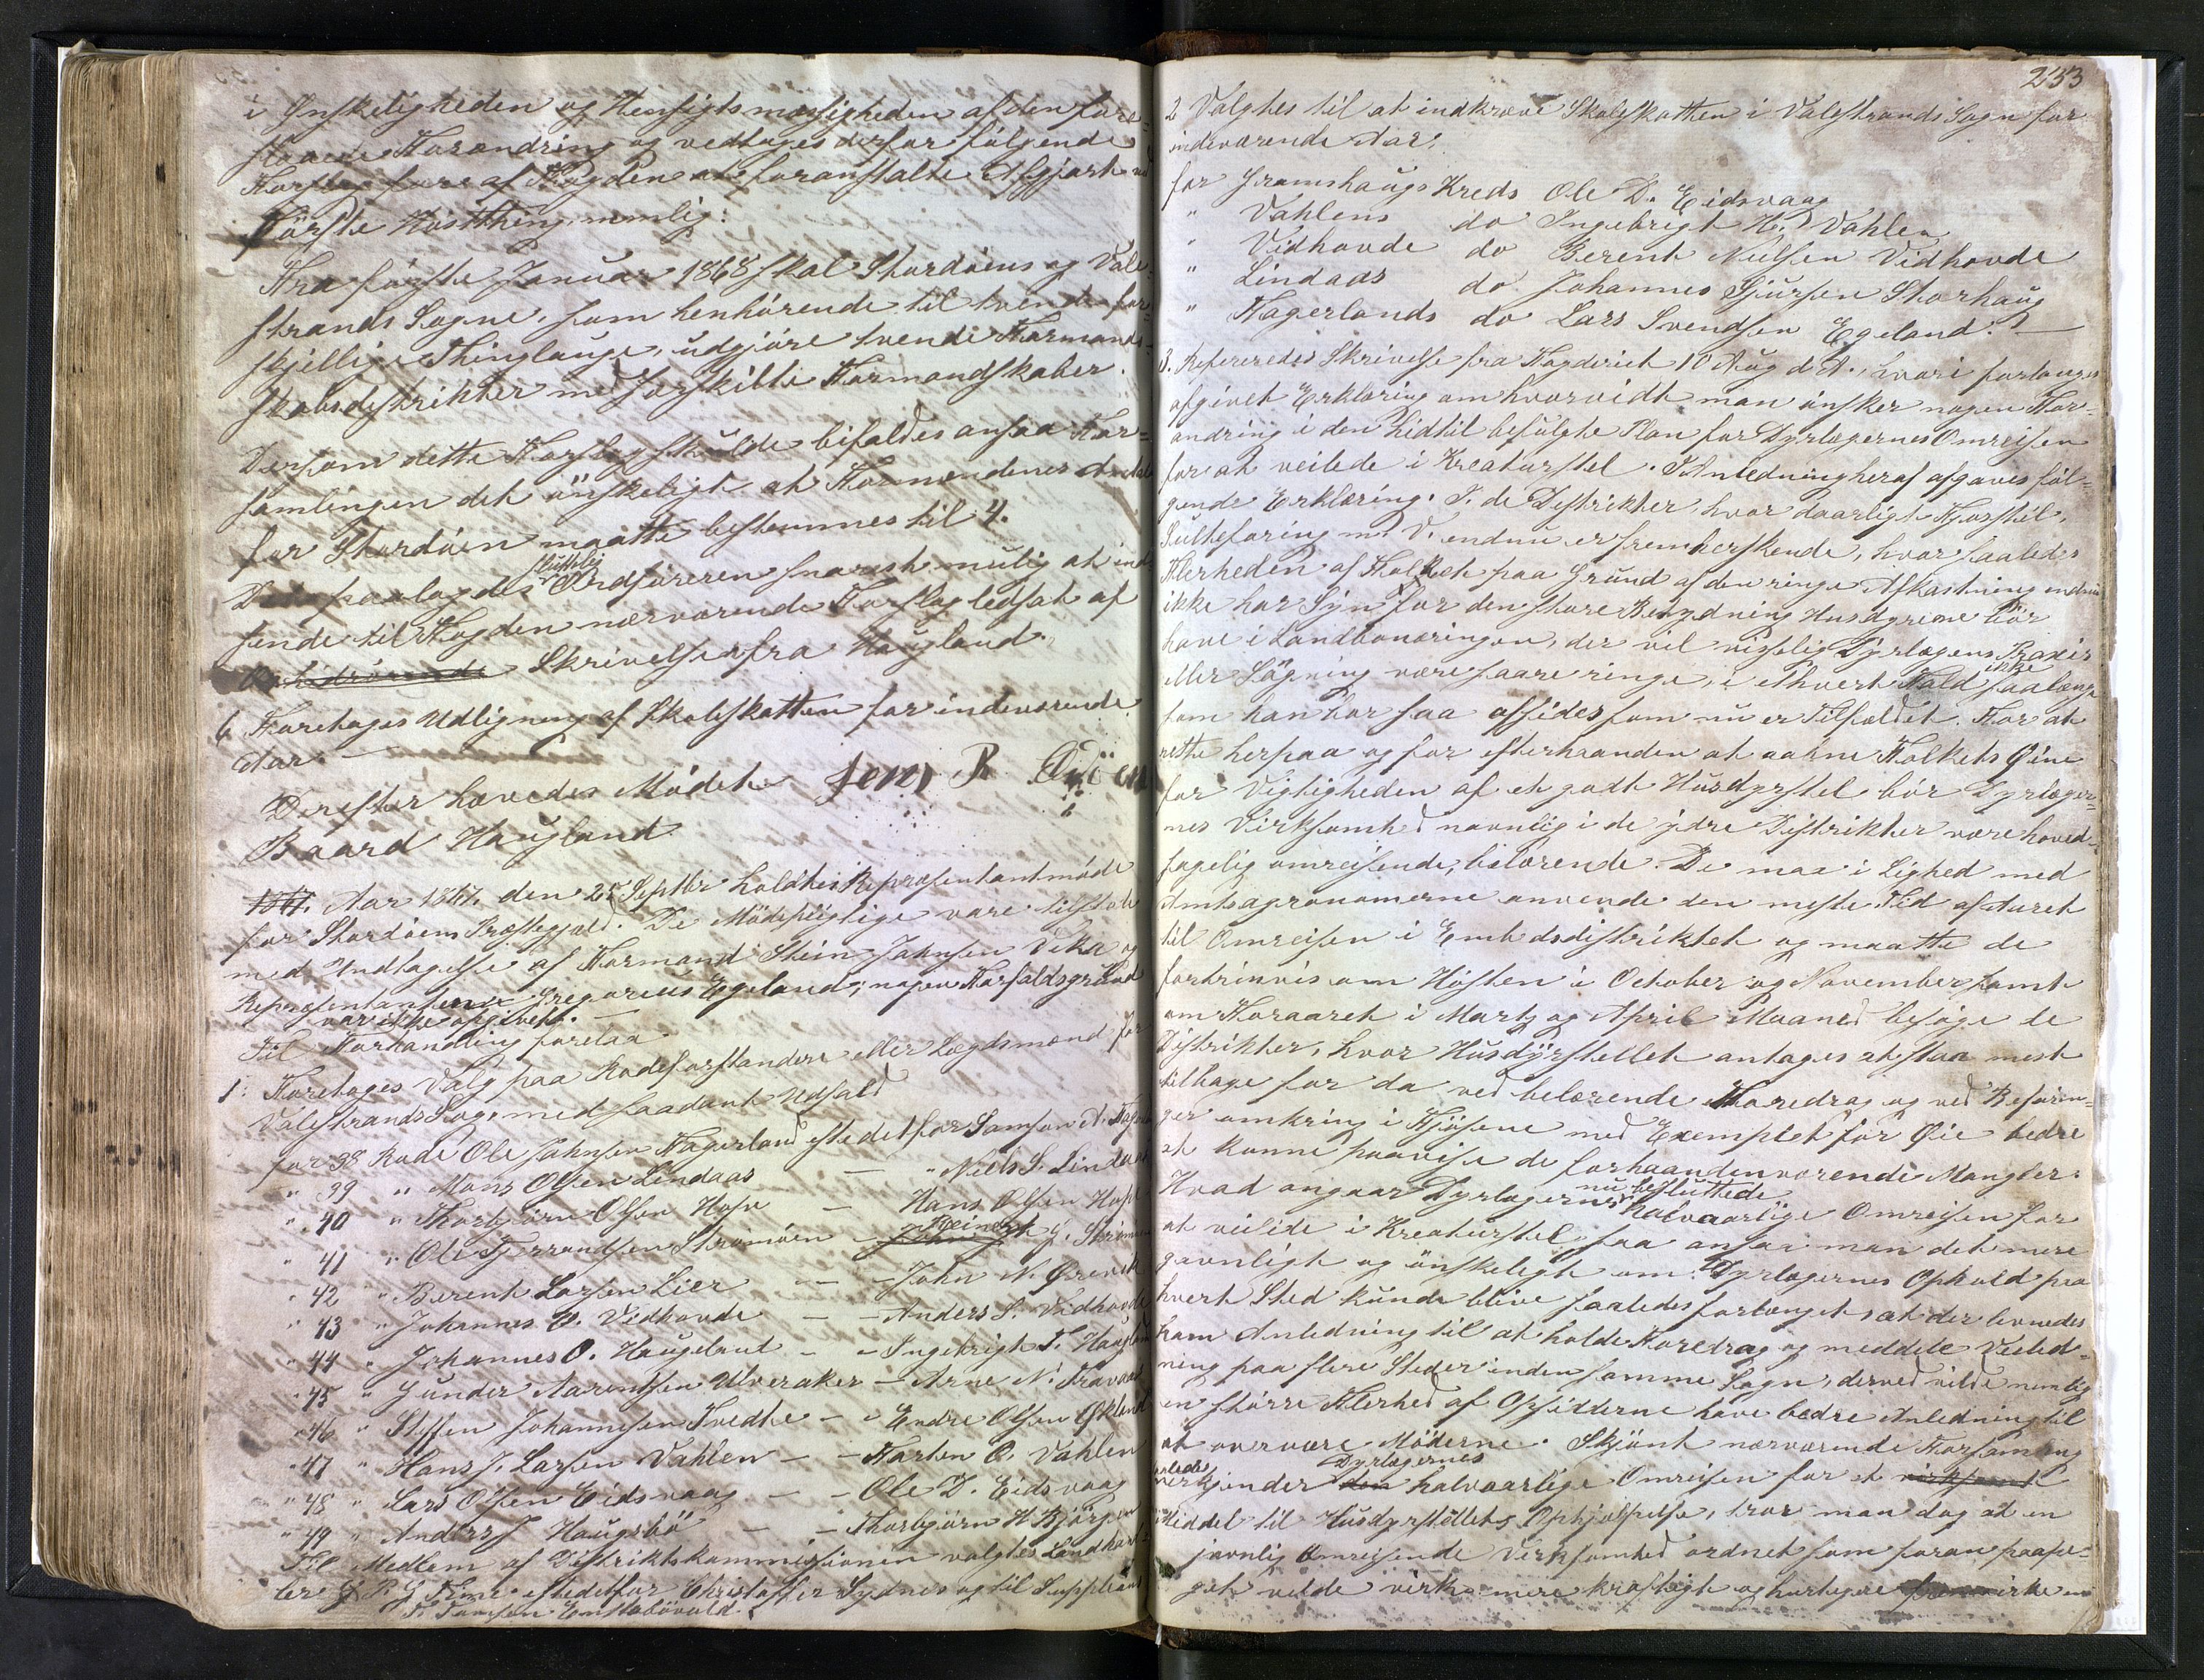 i Ønskeligheden og Hensigtsmæssigheden af den fore-
slaaede Forandring og vedtages derfor følgende
Forslag fore af Fogden at foranstalte Afgjort ved
første Høstthing, nemlig:
Fra første Januar 1868 skal Stordøens og Vale-
strands Sogne, som henhørende til tvende for-
skjellige Thinglauge, udgjøre tvende Formands-
skabsdistrikter med særskilte Formandskaber.
Dersom dette Forslag skulde bifaldes ansaa For-
samlingen det ønskeligt at Formændenes Antal
for Stordøen maatte bestemmes til 4.
Det paalagdes sluttelig Ordføreren snarest mulig at ind-
sende til Fogden nærværende Forslag ledsat af
Skrivelse fra Haugland.
6 Foretoges Udligning af Skoleskatten for indeværende
Aar. —
Derefter hævedes Mödet Jens R
Baard Haugland
1867. Aar 1867. den 25 Septbr holdtes Repræsentantmöde
for Stordöens Præstegjæld. De Mödepligtige vare tilstede
med Undtagelse af Formand Stein Johnsen Vika og
Repræsentanterne Gregorius Egeland; nogen Forfaldsgrund
var ikke opgivet. —
Til Forhandling forelaa
1: Foretoges Valg paa Rodeforstandere eller Lægdsmænd for
Valestrands Sogn med saadant Udfald
for 38 Rode Ole Johnsen Fagerland istedetfor Samson A. Fag
" 39 " Mons Olsen Lindaas — " Niels S. Lindaas
" 40 " Thorbjörn Olsen Hope — Hans Olsen Hope
" 41 " Ole Tjerandsen Strömöen — G. Strömöen
" 42 " Berent Larsen Lier — — John N. Ørevik
" 43 " Johannes O. Vidhovde — — Anders S. Vidhovde
" 44 " Johannes O. Haugelant — — Ingebrigt T. Haugland
" 45 " Gunder Aarentsen Ulveraker — Arne N. Travaas
" 46 " Steffen Johannesen Tvedte — " Endre Olsen Eskeland
" 47 " Hans J. Larsen Vahlen — — Marten O. Vahlen
" 48 " Lars Olsen Eidsvaag — — Ole D. Eidsvaag
" 49 " Anders J Haugsbö — — Thorbjörn H Björgen
Til Medlem af Distriktskommissionen valgtes Landhand-
ler P. G. istedetfor Christoffer Sydnes og til Suppleant
T. Tomsen Enstabövold.
233
2 Valgtes til at indkræve Skoleskatten i Valestrands Sogn for
indeværende Aar:
for Framshaugs Kreds Ole D. Eidsvaag
" Vahlens do Ingebrigt H. Vahlen
" Vidhovde do Berent Nielsen Vidhovde
" Lindaas do Johannes Sjursen Storhaug
" Fagerlands do Lars Svendsen Egeland. —
3. Refereredes Skrivelse fra Fogderiet 10 Aug d. A., hvori forlanges
afgivet Erklæring om hvorvidt man önsker nogen For-
andring i den hidtil befulgte Plan for Dyrlægernes Omreisen
for at veilede i Kreaturstel. I Anledning heraf afgaves föl-
gende Erklæring: I de Distrikter hvor daarligt Fjösstel,
Sultefôring m. V. endnu er fremherskende, hvor saaledes
Flerheden af Folket paa Grund af den ringe Afkastning endnu
ikke har Syn for den store Betydning Husdyrene bör
have i Landbonæringen, der vil visselig Dyrlægens Praxis
eller Sögning være saare ringe, i ethvert Fald ikke saalænge
som han bor saa afsides som nu er Tilfældet. For at
rette herpaa og for efterhaanden at aabne Folkets Öine
for Vigtigheden af et godt Husdyrstel bör Dyrlæger-
nes Virksomhed navnlig i de ydre Distrikter være hoved-
sagelig omreisende, belærende. De maa i Lighed med
Amtsagronomerne anvende den meste Tid af Aaret
til Omreisen i Embedsdistriktet og maatte de
fortrinsvis om Hösten i October og November samt
om Foraaret i Marts og April Maaned besöge de
Distrikter, hvor Husdÿrstellet antages at staa mest
tilbage for da ved belærende Foredrag og ved Besörin-
ger omkring i Fjösene med Exemplet for Öie bedre
at kunne paavise de forhaandenværende Mangler.
Hvad angaar Dyrlægernes nu besluttede halvaarlige Omreisen for
at veilede i Kreaturstel, saa anser man det mere
gavnligt og önskeligt om Dyrlægernes Ophold paa
hvert Sted kunde blive saaledes forlænget, at der levnedes
ham Anledning til at holde Foredrag og meddele Veiled-
ning paa flere Steder inden samme Sogn, derved vilde nemlig
en större Flerhed af Opsidderne have bedre Anledning til
at overvære Möderne. Skjönt nærværende Forsamling
erkjender Dyrlægernes halvaarlige Omreisen for et virksomt
Middel til Husdyrstellets Ophjælpelse, tror man dog at en
jævnlig omreisende Virksomhed ordnet som foran paape-
get vilde virke mere kraftigt og hurtigere